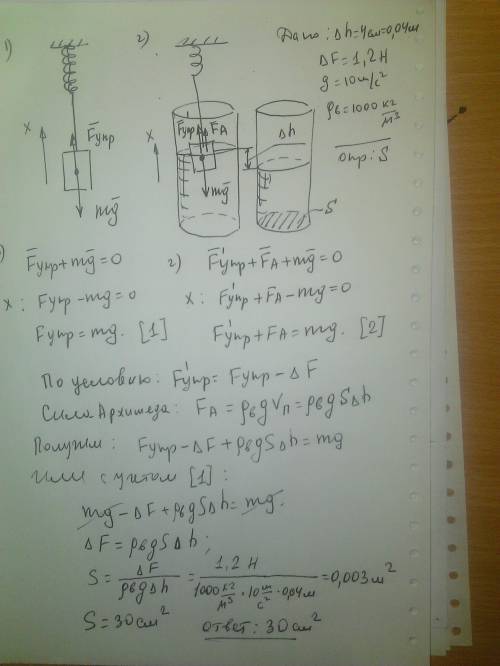 1)
2)
Дано: Δh=4см=0,04м
ΔF=1,2 Н
g=10м/с²
ρв=1000 кг/м³
опр: S
x
F̄упр
mḡ
x
F̄упр
F̄A
Δh
mḡ
S
F̄упр+mḡ=0
x: Fупр-mg=0
Fупр=mg. [1]
2) F̄'упр+F̄A+mḡ=0
x: F'упр+FA-mg=0
F'упр+FA=mg. [2]
По условию: F'упр=Fупр-ΔF
Сила Архимеда: FA=ρвgVп=ρвgSΔh
Получим: Fупр-ΔF+ρвgSΔh=mg
Или с учетом [1]:
mg-ΔF+ρвgSΔh=mg.
ΔF=ρвgSΔh;
S=ΔF/ρвgΔh=1,2 Н/1000 кг/м³·10 м/с²·0,04м=0,003м²
S=30см²
ответ: 30см²